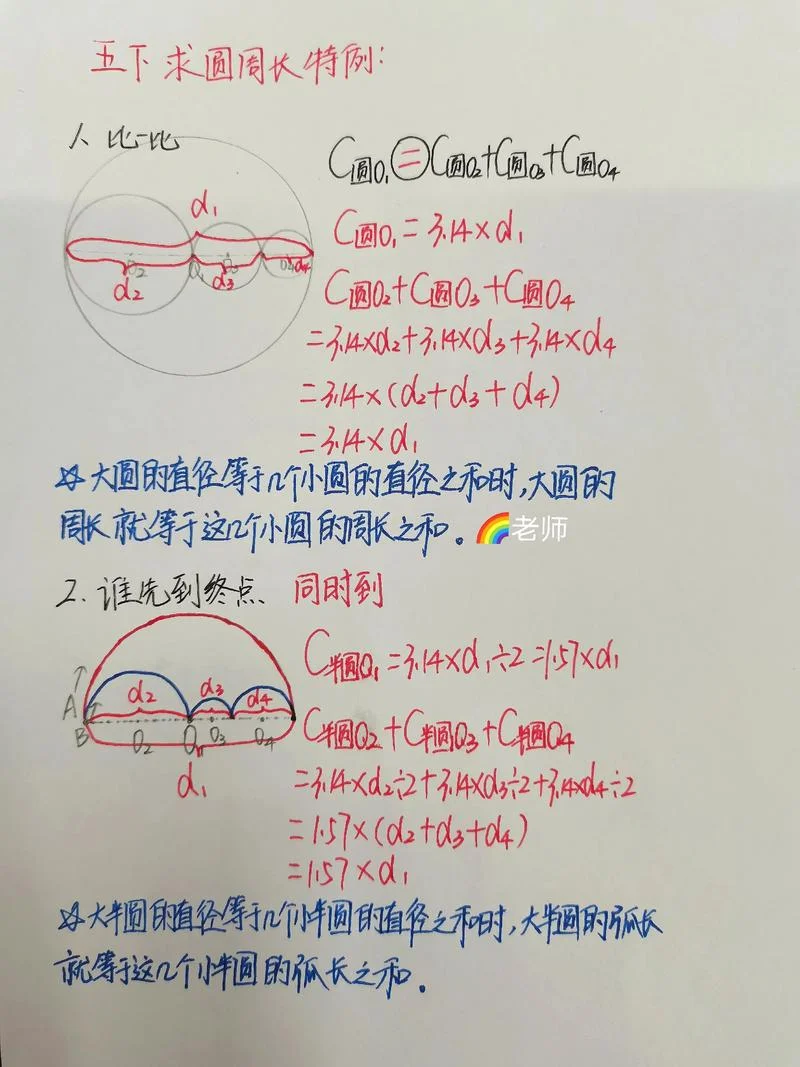 五下求圆周长特例:
1、比一比
C圆O₁=C圆O₂+C圆O₃+C圆O₄
d₁
O₂ O₁ O₄ d₄
d₂ d₃
C圆O₁=3.14×d₁
C圆O₂+C圆O₃+C圆O₄
=3.14×d₂+3.14×d₃+3.14×d₄
=3.14×(d₂+d₃+d₄)
=3.14×d₁
☆大圆的直径等于几个小圆的直径之和时,大圆的
周长就等于这几个小圆的周长之和。
老师
2.谁先到终点 同时到
C半圆O₁=3.14×d₁÷2=1.57×d₁
A d₂ d₃ d₄
B O₂ O₁ O₃ O₄
d₁
C半圆O₂+C半圆O₃+C半圆O₄
=3.14×d₂÷2+3.14×d₃÷2+3.14×d₄÷2
=1.57×(d₂+d₃+d₄)
=1.57×d₁
☆大半圆的直径等于几个小半圆的直径之和时,大半圆的弧长
就等于这几个小半圆的弧长之和.